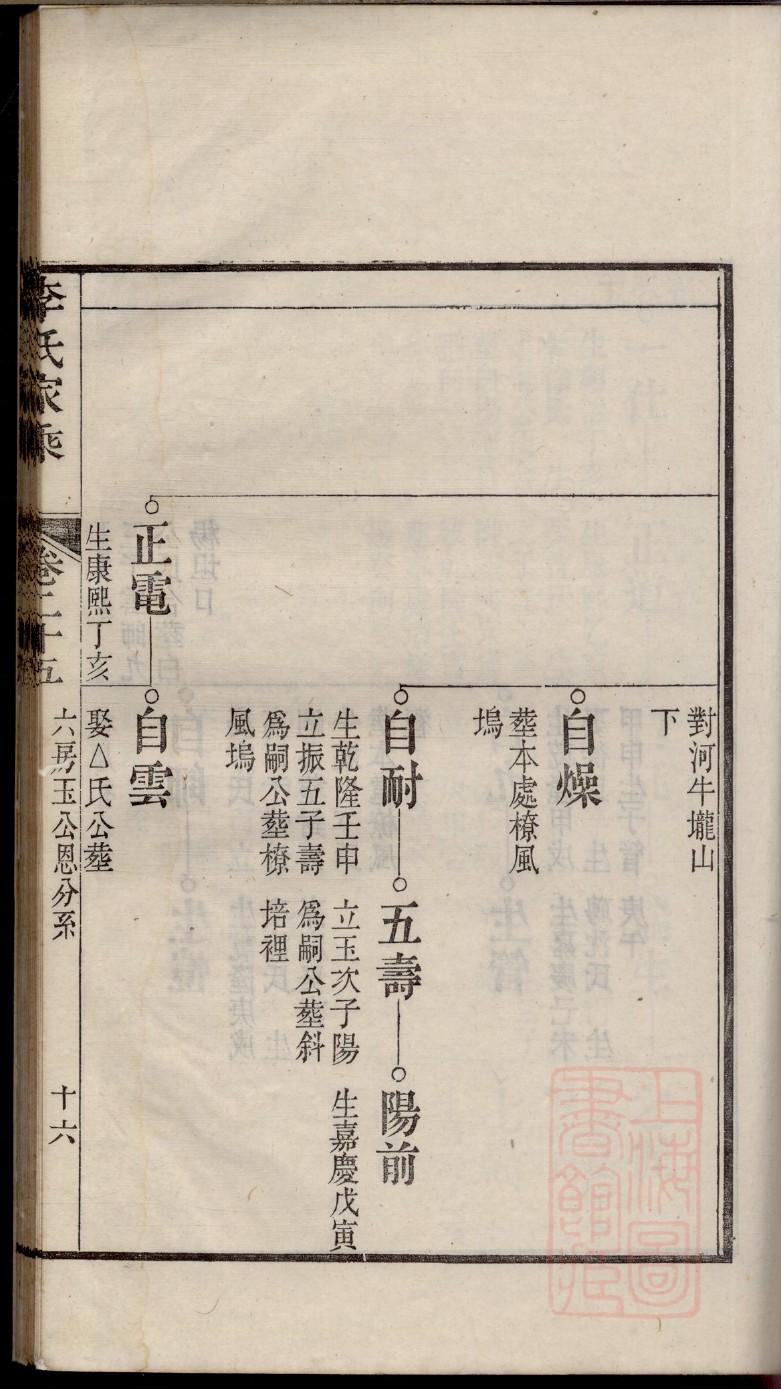 對河牛壠山
下
自燥
塟本處橑風
塢
自耐
生乾隆壬申
立振五子壽
爲嗣公塟橑
風塢
五壽
立玉次子陽
爲嗣公塟斜
培裡
陽前
生嘉慶戊寅
正電
生康熙丁亥
自雲
娶△氏公塟
李氏家乘
卷二十五
六房玉公恩分系
十六
上海圖書館藏